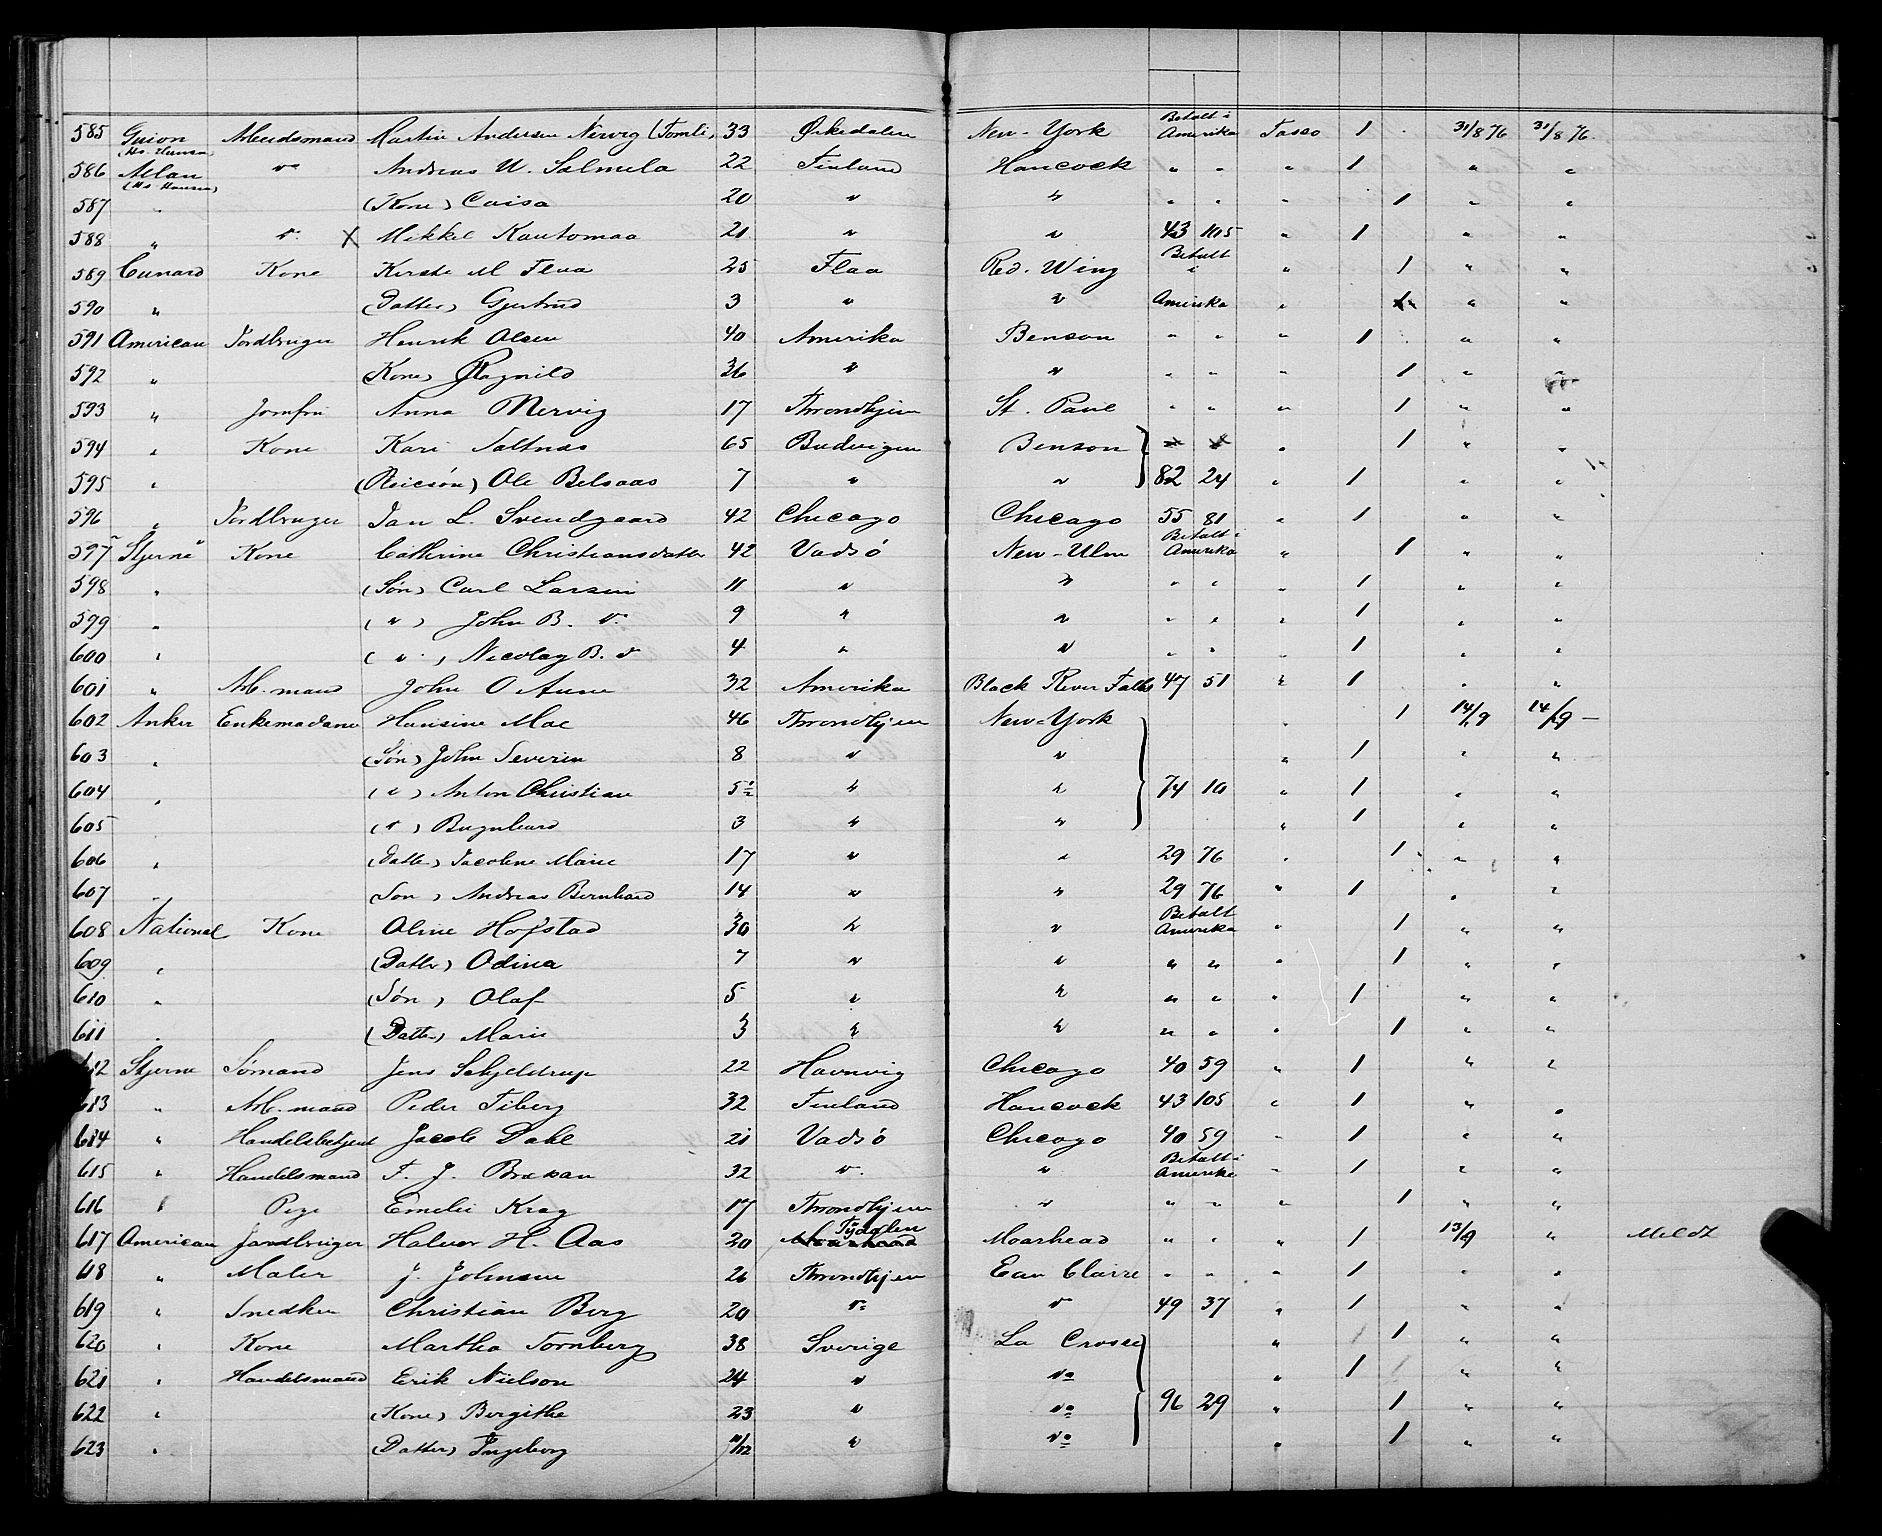 585 Guion (Hs. Hansen) Arbeidsmand Martin Andersen Nervig (Tomli) 33 Ørkedalen New-York Betalt i Amerika Tasso 1 31/8 76 31/8 76.
586 Allan (Hs Hansen) do Andreas W. Salmela 22 Finland Hancock " " " 1 " "
587 " (Kone) Caisa 20 " " " " " 1 " "
588 " do X Mikkel Kautomaa 21 " " 43 105 " 1 " "
589 Cunard Kone Kirsti M Flaa 25 Flaa Red. Wing Betalt i " 1 " "
590 " (Datter) Gjertrud 3 " " Amerika " 1 " "
591 American Jordbruger Henrik Olsen 40 Amerika Benson " " " 1 " "
592 " (Kone) Ragnild 36 " " " " " 1 " "
593 " Jomfru Anna Mervig 17 Throndhjem St. Paul " " " 1 " "
594 " Kone Kari Saltnas 65 Budvigen Benson " 1 " "
595 " Ole Belsaas 7 " " 82 24 " 1 " "
596 " Jordbruger Jan L. Svendgaard 42 Chicago Chicago 55 81 " 1 " "
597 Stjerne Kone Cathrine Christiansdatter 42 Vadsö New-Ulm Betalt i Amerika " 1 " "
598 " (Søn) Carl Larsen 11 " " " " " 1 " "
599 " ( " ) John B. do 9 " " " " " 1 " "
600 " ( " ) Nicolay B. do 4 " " " " " 1 " "
601 " Arb. mand John O Aune 32 Amerika Black River Falls 47 51 " 1 " "
602 Anker Enkemadame Hansine Moe 46 Throndhjem New-York " 1 14/9 14/9 —
603 " (Søn) John Severin 8 " " " 1 " "
604 " ( " ) Anton Christian 5½ " " 74 10 " 1 " "
605 " ( " ) Bernhard 3 " " " 1 " "
606 " (Datter) Jacobine Marie 17 " " 29 76 " 1 " "
607 " Søn) Andreas Bernhard 14 " " 29 76 " 1 " "
608 National Kone Oline Hofstad 30 " " Betalt Amerika " 1 " "
609 " (Datter) Odina 7 " " " " " 1 " "
610 " (Søn) Olaf 5 " " " " " 1 " "
611 " (Datter) Marie 3 " " " " " 1 " "
612 Stjerne Sømand Jens Schjeldrup 22 Havnvig Chicago 40 59 " 1 " "
613 " Arb. mand Peder Tiberg 32 Finland Hancock 43 105 " 1 " "
614 " Handelsbetjent Jacob Dahl 21 Vadsö Chicago 40 59 " 1 " "
615 " Handelsmand F. J. 32 do " Betalt i Amerika " 1 " "
616 " Pige Emelie Krag 17 Throndhjem " " " " 1 " "
617 American Jordbruger Halvor H. Aas 20 Tydalen Moarhead " " " 1 13/9 " Meldt
618 " Maler J. Johnsen 26 Throndhjem Eau Clairre " " " 1 " "
619 " Snedker Christian Berg 20 do do 49 37 " 1 " "
620 " Kone Martha Tornberg 38 Sverige La Crosse " 1 " "
621 " Handelsmand Erik Nielson 24 " do " 1 " "
622 " (Kone) Bergithe 23 " do 96 29 " 1 " "
623 " (Datter) Ingeborg 11/12 " do " 1 " "